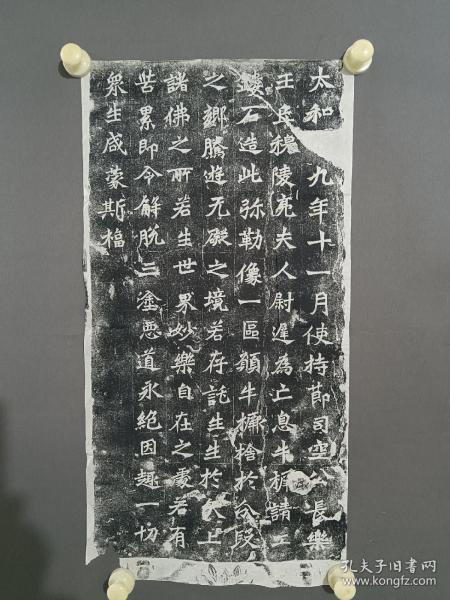 太和　九年十一月使持節司空公長樂
王丘穆陵亮夫人尉遲為亡息牛橛請工
鏤石造此弥勒像一區願牛橛捨於分段
之鄉騰遊无礙之境若存託生生於天上
諸佛之所若生世界妙樂自在之處若有
苦累即令解脱三塗惡道永絕因趣一切
衆生咸蒙斯福
孔夫子旧书网
www.kongfz.com